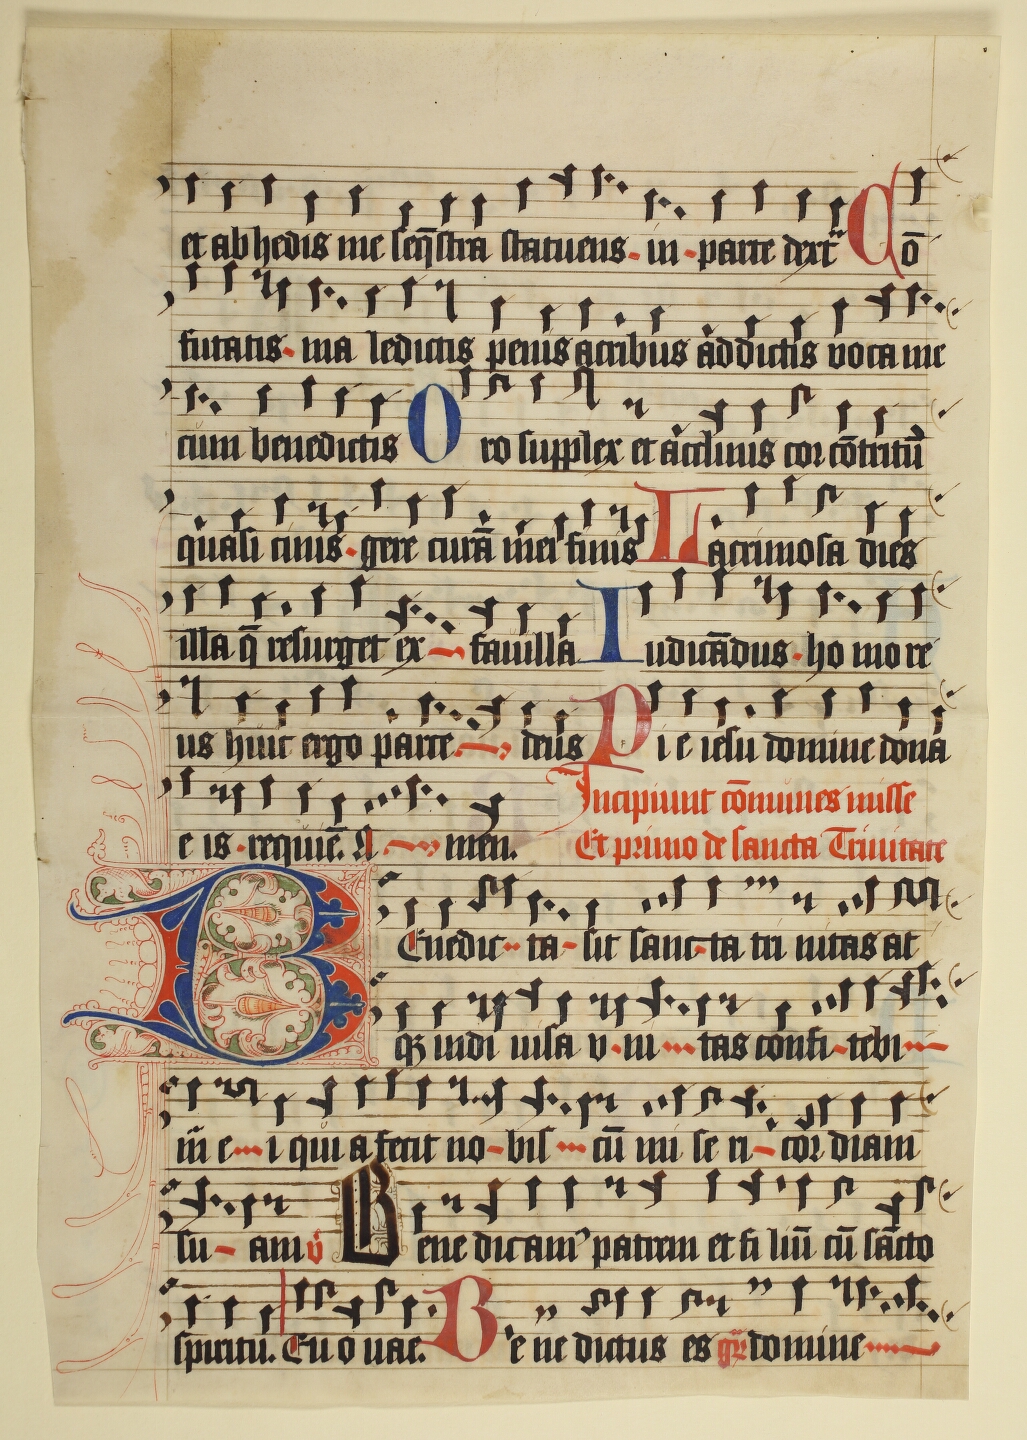 et ab hedis me seq̄stra statuens in parte dext̃ Cō
futatis ma ledictis penis acribus addictis voca me
cum benedictis Oro supplex et acclinis cor cōtritū
quasi cinis gere curā mei finis Lacrimosa dies
illa q̄ resurget ex favilla Iudicādus homo re
us huic ergo parte deus Pie iesu domine dona
eis requiē. Amen. Incipiunt cōmunes misse
Et primo de sancta Trinitate
Benedicta sit sancta trinitas at
qʒ indivisa unitas confitebi
m̄ ei quia fecit nobis cū misericordiam
suam v̄ Benedicamꝰ patrem et filiū cū sācto
spiritu. Euouae. Benedictus es gr̄ domine